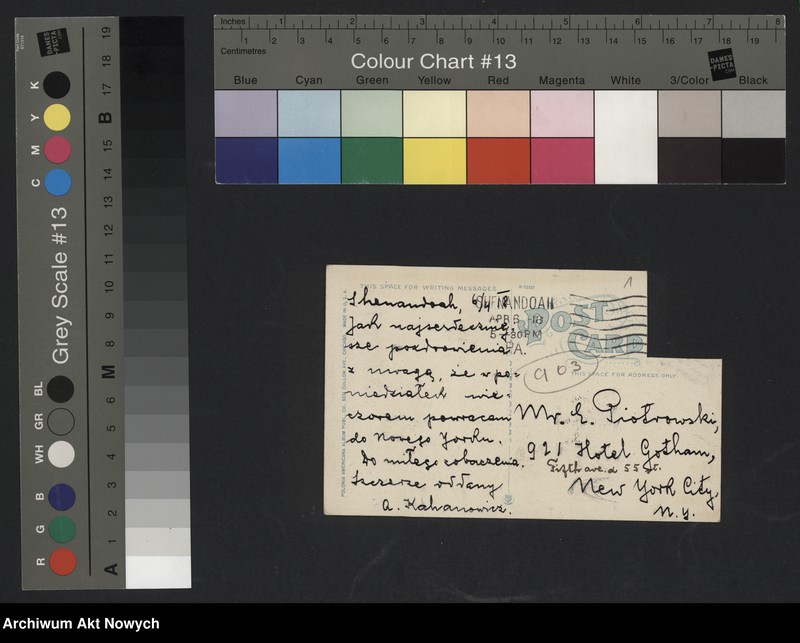 Inches 1 2 3 4 5 6 7 8
1 2 3 4 5 6 7 8 9 10 11 12 13 14 15 16 17 18 19
Centimetres
Colour Chart #13
DANES PICTA .COM
Blue Cyan Green Yellow Red Magenta White 3/Color Black
Grey Scale #13
DANES PICTA .COM
R G B WH GR BL C M Y K
A 1 2 3 4 5 6 M 8 9 10 11 12 13 14 15 B 17 18 19
THIS SPACE FOR WRITING MESSAGES
1
SHENANDOAH
APR 6 -18
5-30PM
PA.
POST
CARD
THIS SPACE FOR ADDRESS ONLY
903
Shenandoah, 6/4 18
Jak najserdeczniej-
sze pozdrowienia
z uwagą, że w po-
niedziałek wie-
czorem powracam
do Nowego Yorku.
Do miłego zobaczenia.
Szczerze oddany
A. Kahanowicz.
Mr. E. Piotrowski,
921 Hotel Gotham,
Fifth ave. a 55 St.
New York City,
N.Y.
Archiwum Akt Nowych